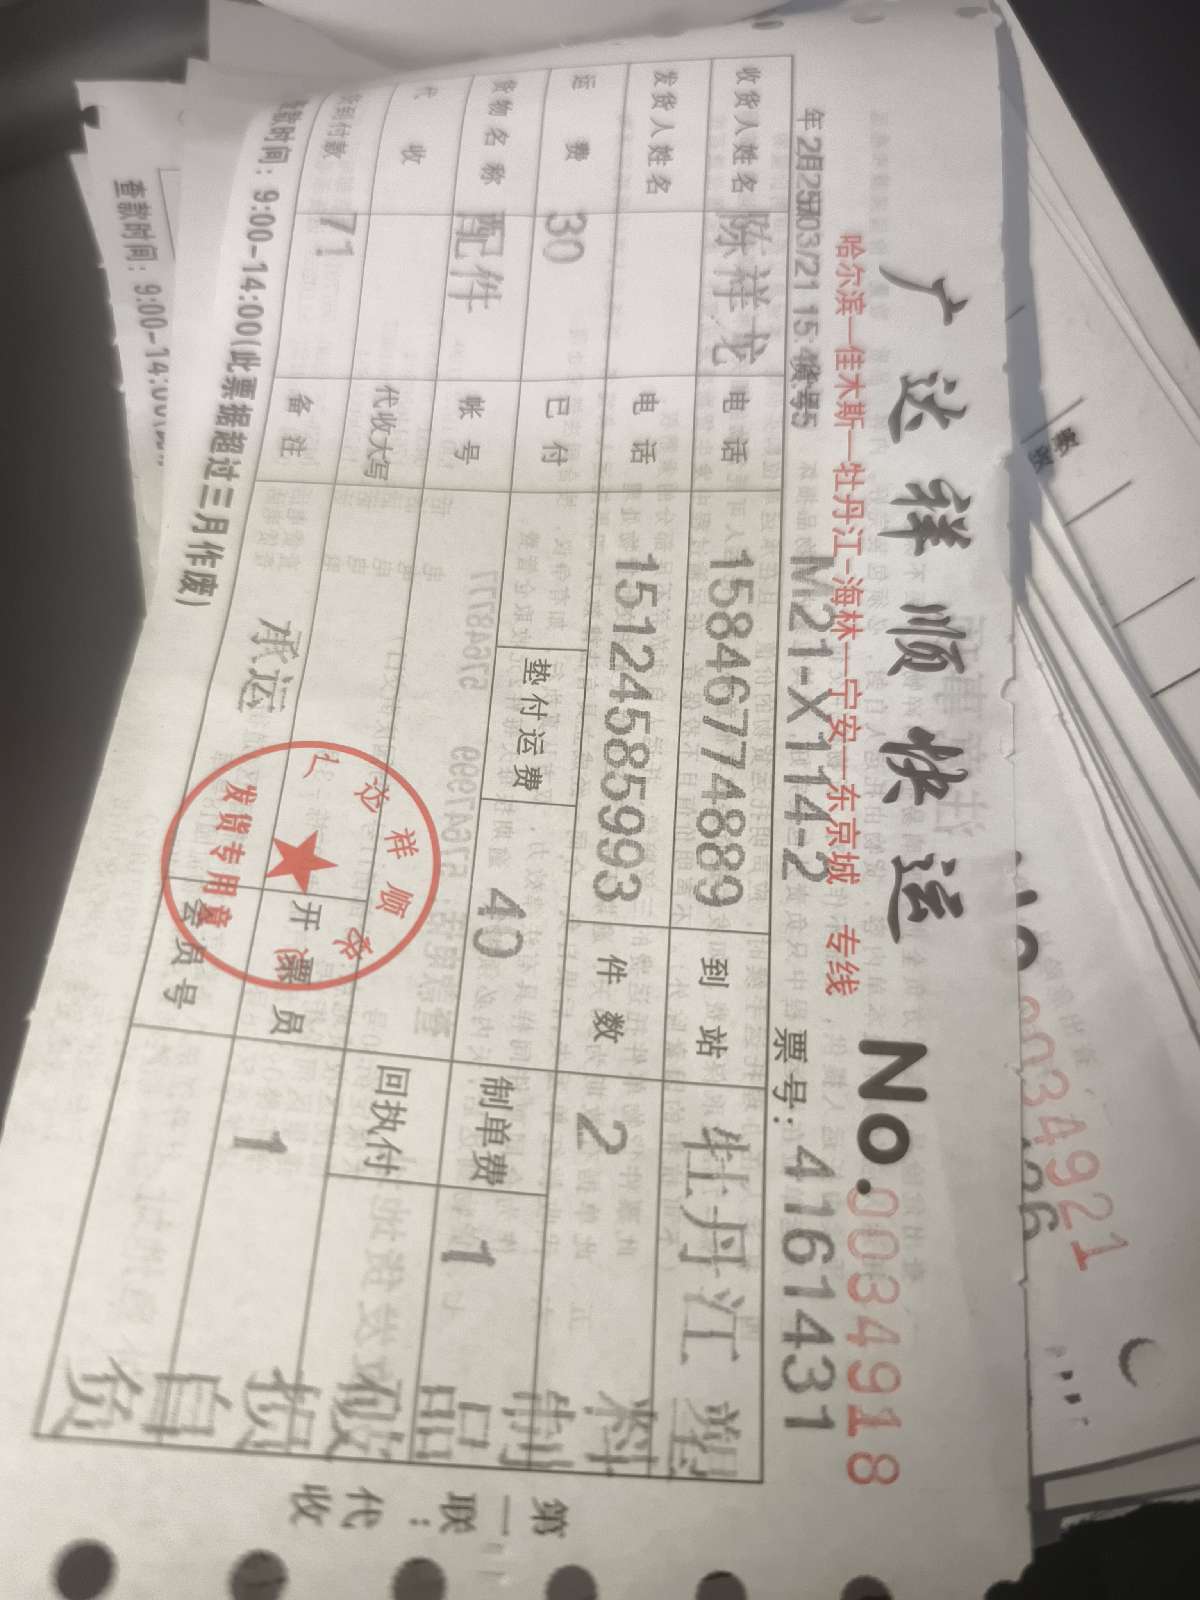 广达祥顺快运 No. 0034918
哈尔滨—佳木斯—牡丹江-海林—宁安—东京城 专线
M21-X114-2 票号: 4161431
收货人姓名 陈祥龙 电话 15846774889 到站 牡丹江
发货人姓名 电话 15124585993 件数 2
运费 30 已付 垫付运费 40 制单费 1
货物名称 配件 帐号 回执付
代收 代收大写 开票员 1
货到付款 71 备注 承运 会员号
塑料制品破损自负
广达祥顺
发货专用章
查款时间: 9:00-14:00(此票据超过三月作废)
第一联: 代收
0034921
查款时间: 9:00-14:00